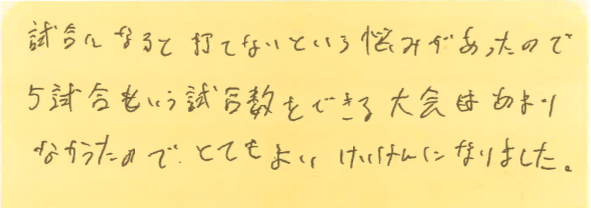 試合になると打てないという悩みがあったので
5試合もいう試合数をできる大会はあまり
なかったので、とてもよい けいけんになりました。